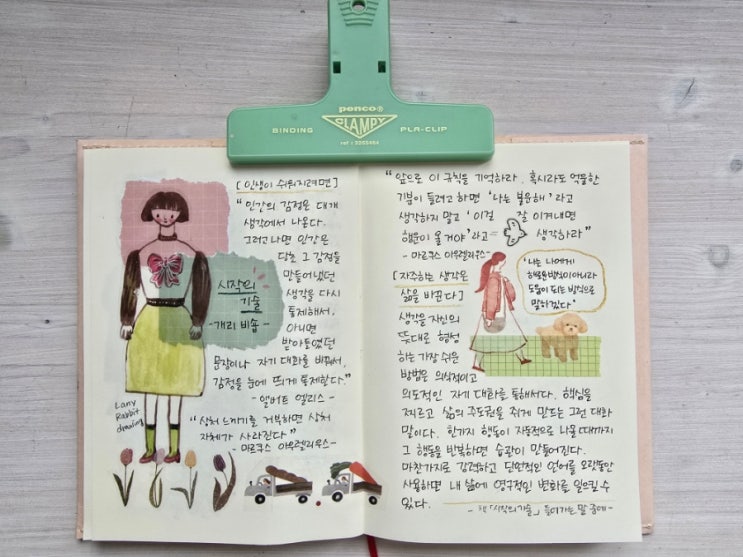 penco®
CLAMPY
BINDING
PLA-CLIP
ref : DD054GA
[인생이 쉬워지려면]
"인간의 감정은 대개
생각에서 나온다.
그러고나면 인간은
당초 그 감정을
만들어냈던
생각을 다시
통제해서,
아니면
받아들였던
문장이나 자기 대화를 바꿔서,
감정을 눈에 띄게 통제한다."
- 앨버트 엘리스 -
시작의
기술
-개리 비숍-
"상처 느끼기를 거부하면 상처
자체가 사라진다"
- 마르쿠스 아우렐리우스-
Lany
Rabbit
drawing
"앞으로 이 규칙을 기억하라. 혹시라도 억울한
기분이 들려고 하면 '나는 불운해' 라고
생각하지 말고 '이걸 잘 이겨내면
행운이 올거야' 라고 생각하라"
- 마르쿠스 아우렐리우스-
[자주하는 생각은
삶을 바꾼다]
'나는 나에게
해로운 방식이 아니라
도움이 되는 방식으로
말하겠다'
생각을 자신의
뜻대로 형성
하는 가장 쉬운
방법은 의식적이고
의도적인 자기 대화를 통해서다. 핵심을
찌르고 삶의 주도권을 쥐게 만드는 그런 대화
말이다. 한가지 행동이 자동적으로 나올 때까지
그 행동을 반복하면 습관이 만들어진다.
마찬가지로 강력하고 단언적인 언어를 오랫동안
사용하면 내 삶에 영구적인 변화를 일으킬 수
있다.
- 책「시작의기술」들어가는 말 중에-